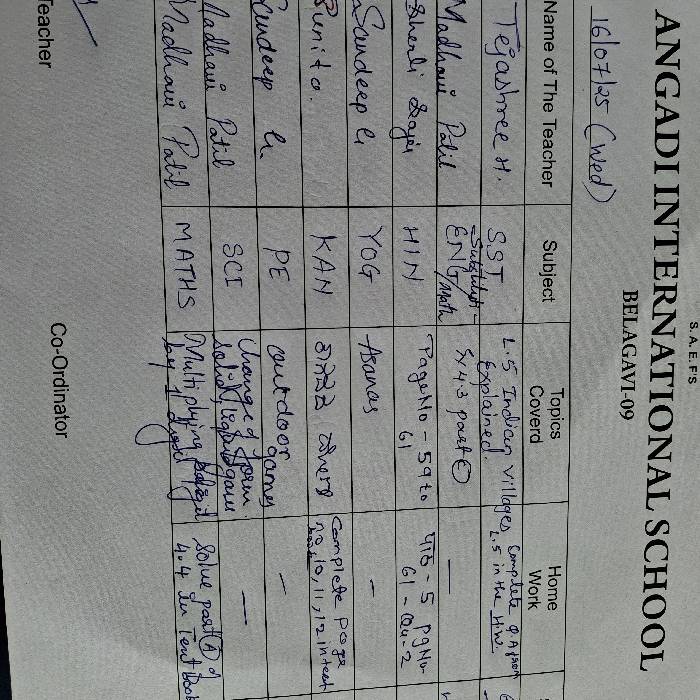 S. A. E. F'S
ANGADI INTERNATIONAL SCHOOL
BELAGAVI-09
16/07/25 (Wed)
Name of The Teacher Subject Topics Coverd Home Work
Tejashree H. S.ST L.5 Indian Villages Explained. Complete Q A from L.5 in the H.W.
Madhavi Patil ENG/Math Ex 4.3 part
HIN Page No - 59 to 61 - 5 Pg No 61 - Qu-2
Sandeep G YOG Asanas -
Punita. KAN Complete page no, 10, 11, 12 in text book
Sandeep G. PE outdoor games -
Madhavi Patil SCI Change of form solid, liquid gas -
Madhavi Patil MATHS Multiplying by 1 digit Solve part (A) of 4.4 in Text book
Teacher Co-Ordinator